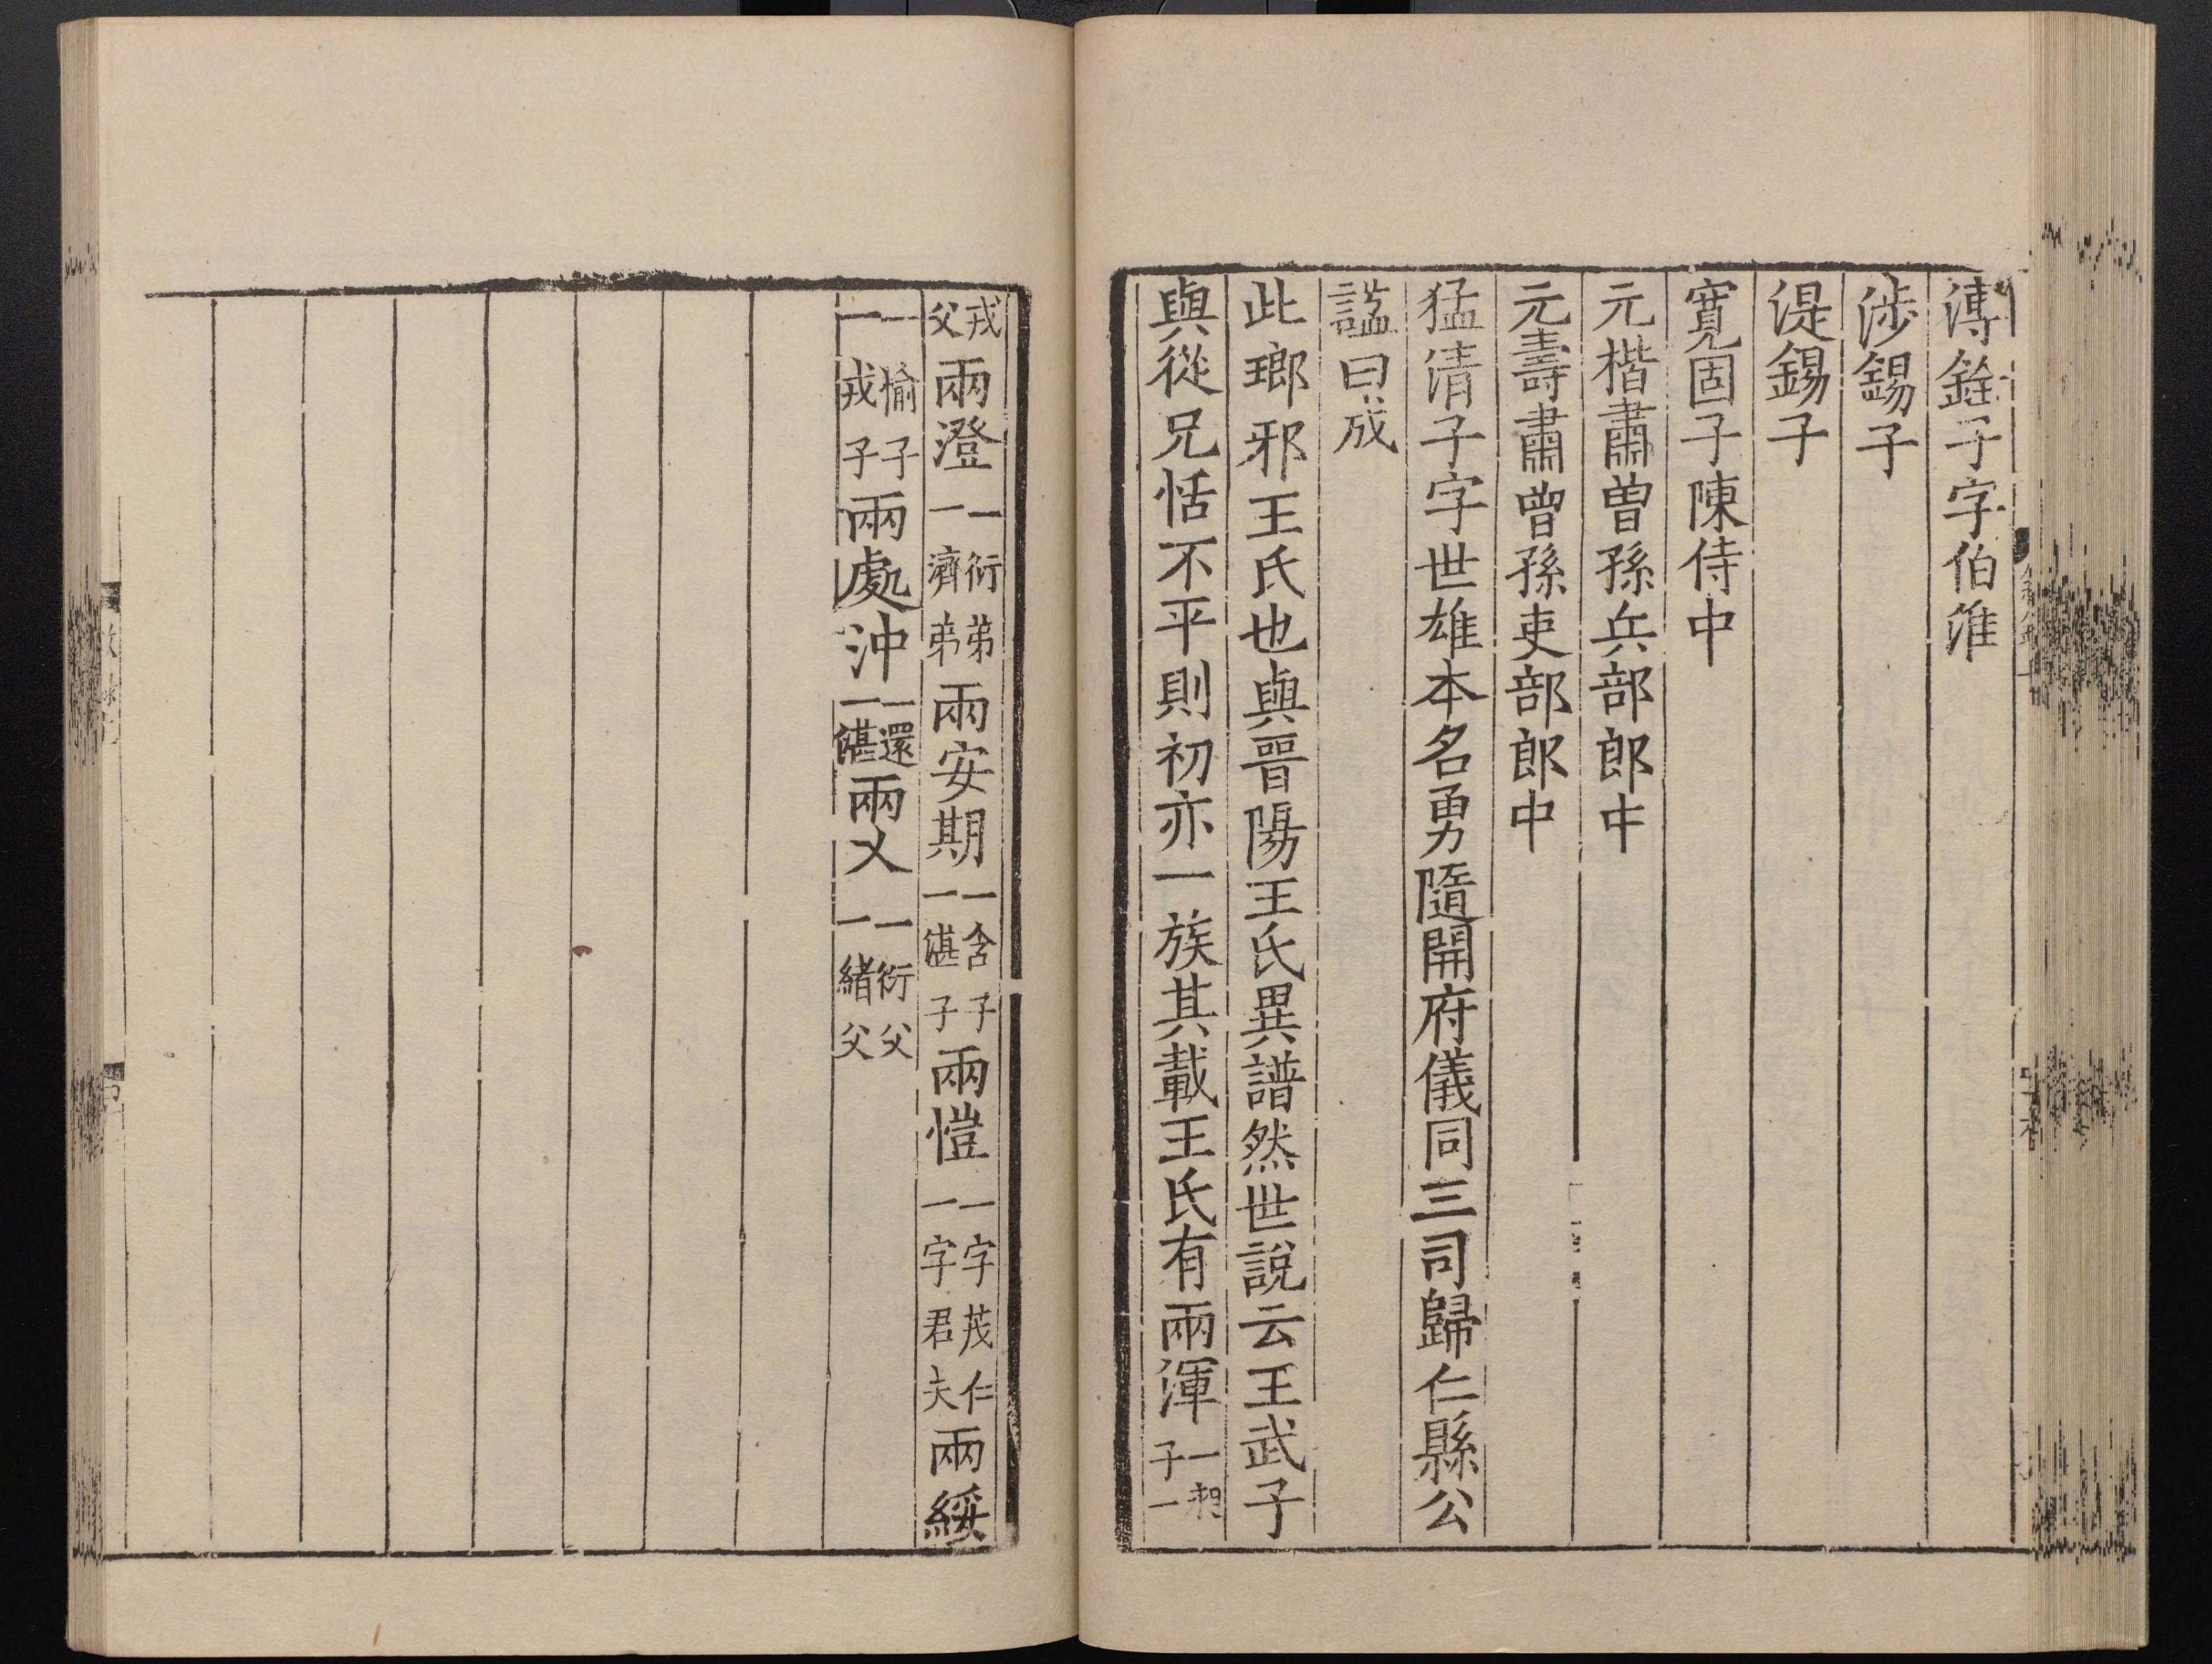 溥銓子字伯淮
渉錫子
湜錫子
寬固子陳侍中
元楷肅曽孫兵部郎中
元壽肅曽孫吏部郎中
猛清子字世雄本名勇隨開府儀同三司歸仁縣公
諡曰成
此瑯邪王氏也與晉陽王氏異譜然世說云王武子
與從兄恬不平則初亦一族其載王氏有兩渾一昶子一
戎父兩澄一衍弟一濟弟兩安期一含子一諶子兩愷一字茂仁一字君夫兩綏
一愉子一戎子兩處沖一還一諶兩乂一衍父一緒父